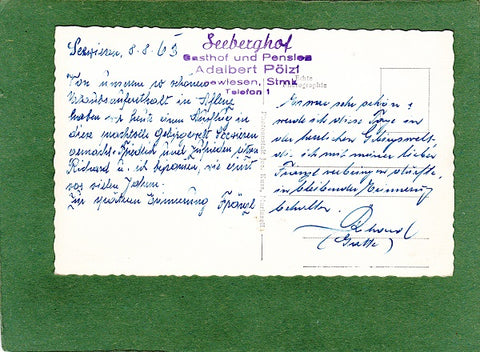 Seewiesen, 8.8.63
Seeberghof
Gasthof und Pension
Adalbert Pölzl
Seewiesen, Stmk
Telefon 1
Echte
Photographie
Von unserem so schönen
Urlaubsaufenthalt in Aflenz
haben wir heute einen Ausflug in
diese prachtvolle Gebirgswelt Seewiesen
gemacht. Friedlich und zufrieden sitzen
Richard u. ich beisammen, wie einst
vor vielen Jahren.
Zur späteren Erinnerung Fränzl
Immer sehr schön!
werde ich diese Tage in
der herrlichen Gebirgswelt
die ich mit meiner lieben
Fränzl verbringen durfte,
in bleibender Erinnerung
behalten.
Richard
(Gatte)